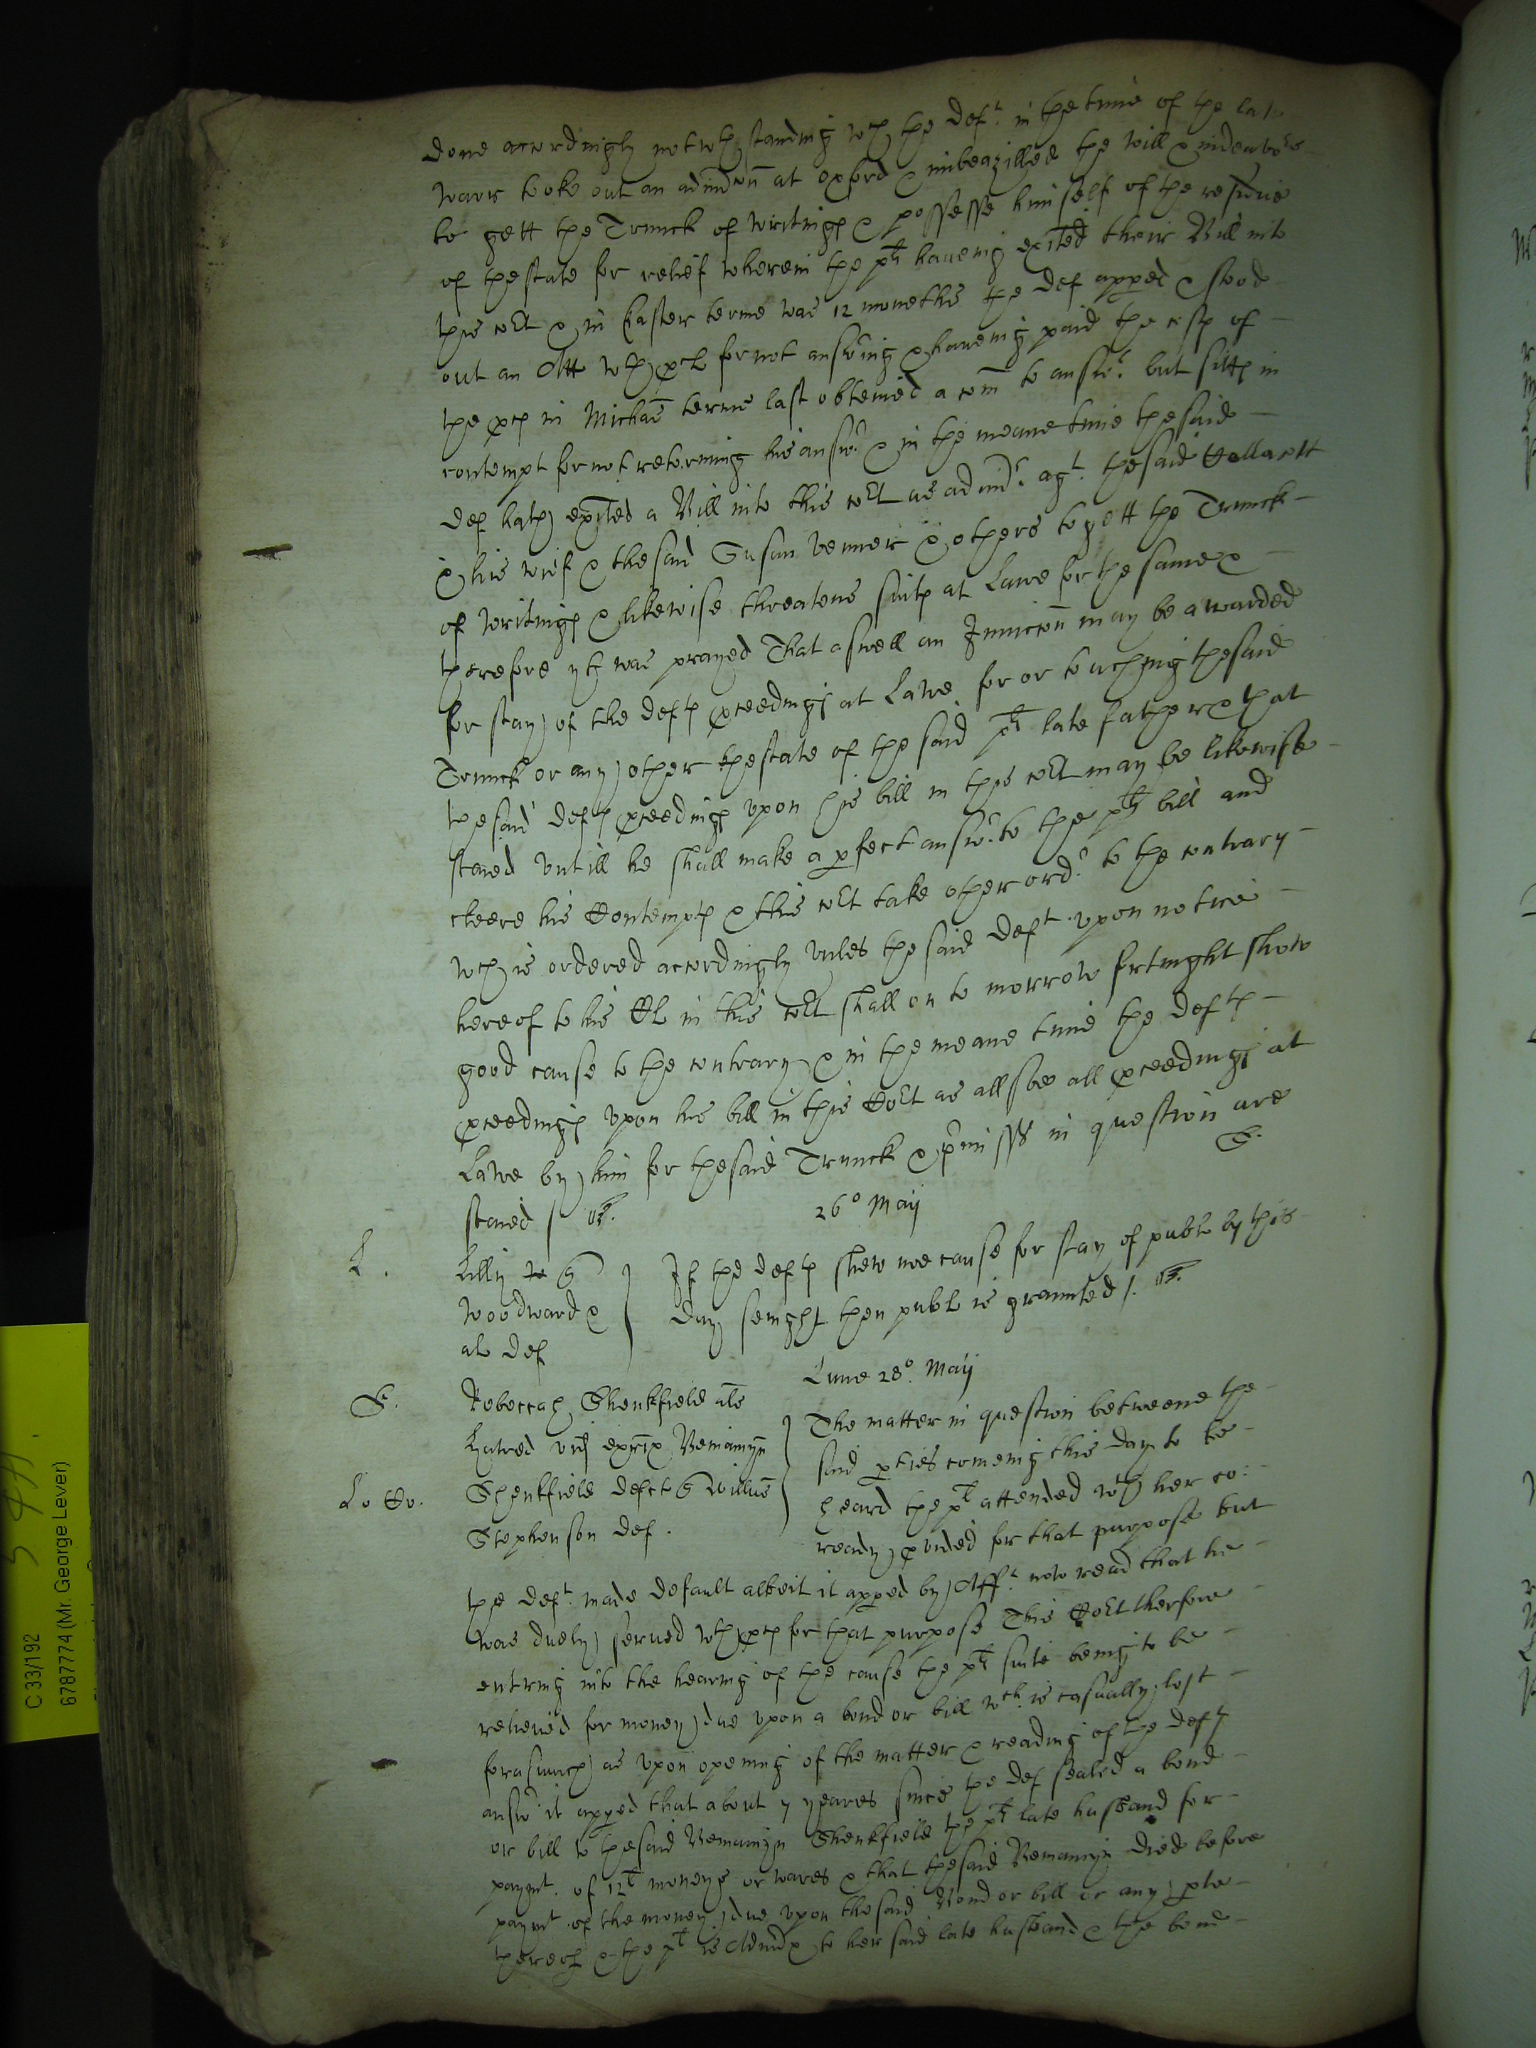 done accordingly notwthstanding wch the deft. in the time of the late
warr tooke out an admicon at oxford & imbeazilled the will & indeavors
to gett the Trunck of writings & possesse himself of the residue
of thestate for relief wherein the plts haveing exited their Bill into
this cort & in Easter terme was 12 monethes the def apped & stood
out an Att wth pcl for not answing & haveing paid the costs of
the pces in Michas terme last obteined a com to answr. but sitts in
contempt for not retorning his answr. & in the meane time the said
def hath exited a Bill into this cort as admr. agt. the said
& his wief & the said Susan Venner & others to gett the Trunck
of writings & likewise threatens suits at Lawe for the same &
therefore yt was prayed That aswell an Iniuccon may be awarded
for stay of the defts pceedings at Lawe for or touching the said
Trunck or any other thestate of the said plts late father & that
the said defts pceedings upon his bill in this cort may be likewise
staied untill he shall make a pfect answr. to the plts bill and
cleere his Contempts & this cort take other ordr. to the contrary
wch is ordered accordingly unles the said deft. upon notice
hereof to his Cl in this cort shall on to morrow fortnight shew
good cause to the contrary & in the meane time the defts
pceedings upon his bill in this Cort as allsoe all pceedings at
Lawe by him for the said Trunck & pmisses in question are
staied
26o Maij
L.
Lilly q
Woodward &
al def
If the defts shew noe cause for stay of publ by this
day senight then publ is graunted /.
Lune 28o. Maij
S.
Rebeccah Shenkfield als
vid exrix Beniamyn
Shenkfield defct q Willm
Stephenson def.
Lo Co.
The matter in question betweene the
said pties comeing this day to be
heard the plt attended wth her co:
ready pvided for that purpose but
the deft. made default albeit it apped by Afft. now read that he
was duely served wth pces for that purpose This Cort therfore
entring into the hearing of the cause the plts suite being to be
relieved for money due upon a bond or bill wch. is casually lost
forasmuch as upon opening of the matter & reading of the defts
answr. it apped that about 7 yeares since the def sealed a bond
or bill to the said Beniamyn Shenkfield the plts late husband for
paymt. of 12l moneys or wares & that the said Beniamyn died before
paymt. of the money due upon the said Bond or bill or any pte
thereof & the plt is Admx to her said late husband & the bond
C 33/192
6787774 (Mr. George Lever)